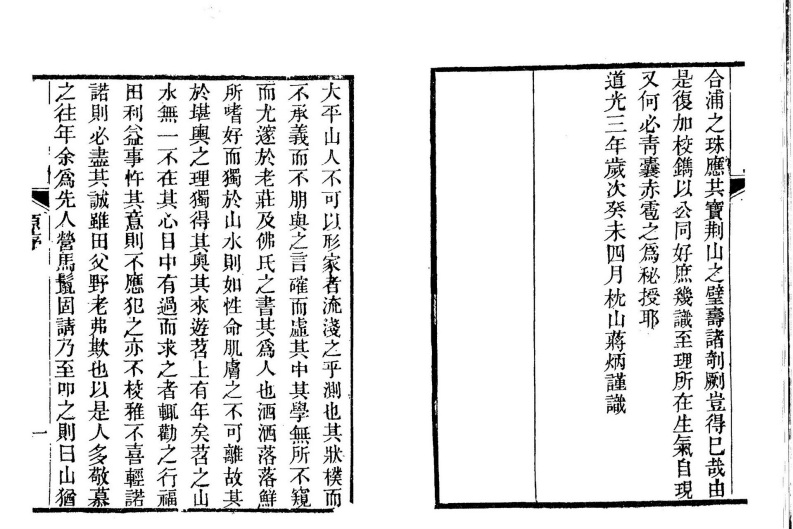 合浦之珠應共寶荆山之璧壽諸剞劂豈得已哉由
是復加校鐫以公同好庶幾識至理所在生氣自現
又何必靑囊赤雹之爲秘授耶
道光三年歲次癸未四月枕山蔣炳謹識
大平山人不可以形家者流淺之乎測也其狀樸而
不承義而不朋與之言確而虛其中其學無所不窺
而尤邃於老莊及佛氏之書其爲人也洒洒落落鮮
所嗜好而獨於山水則如性命肌膚之不可離故其
於堪輿之理獨得其奥其來遊苕上有年矣苕之山
水無一不在其心目中有過而求之者輒勸之行福
田利益事忤其意則不應犯之亦不校雅不喜輕諾
諾則必盡其誠雖田父野老弗欺也以是人多敬慕
之往年余爲先人營馬鬛固請乃至叩之則曰山猶
原序
一